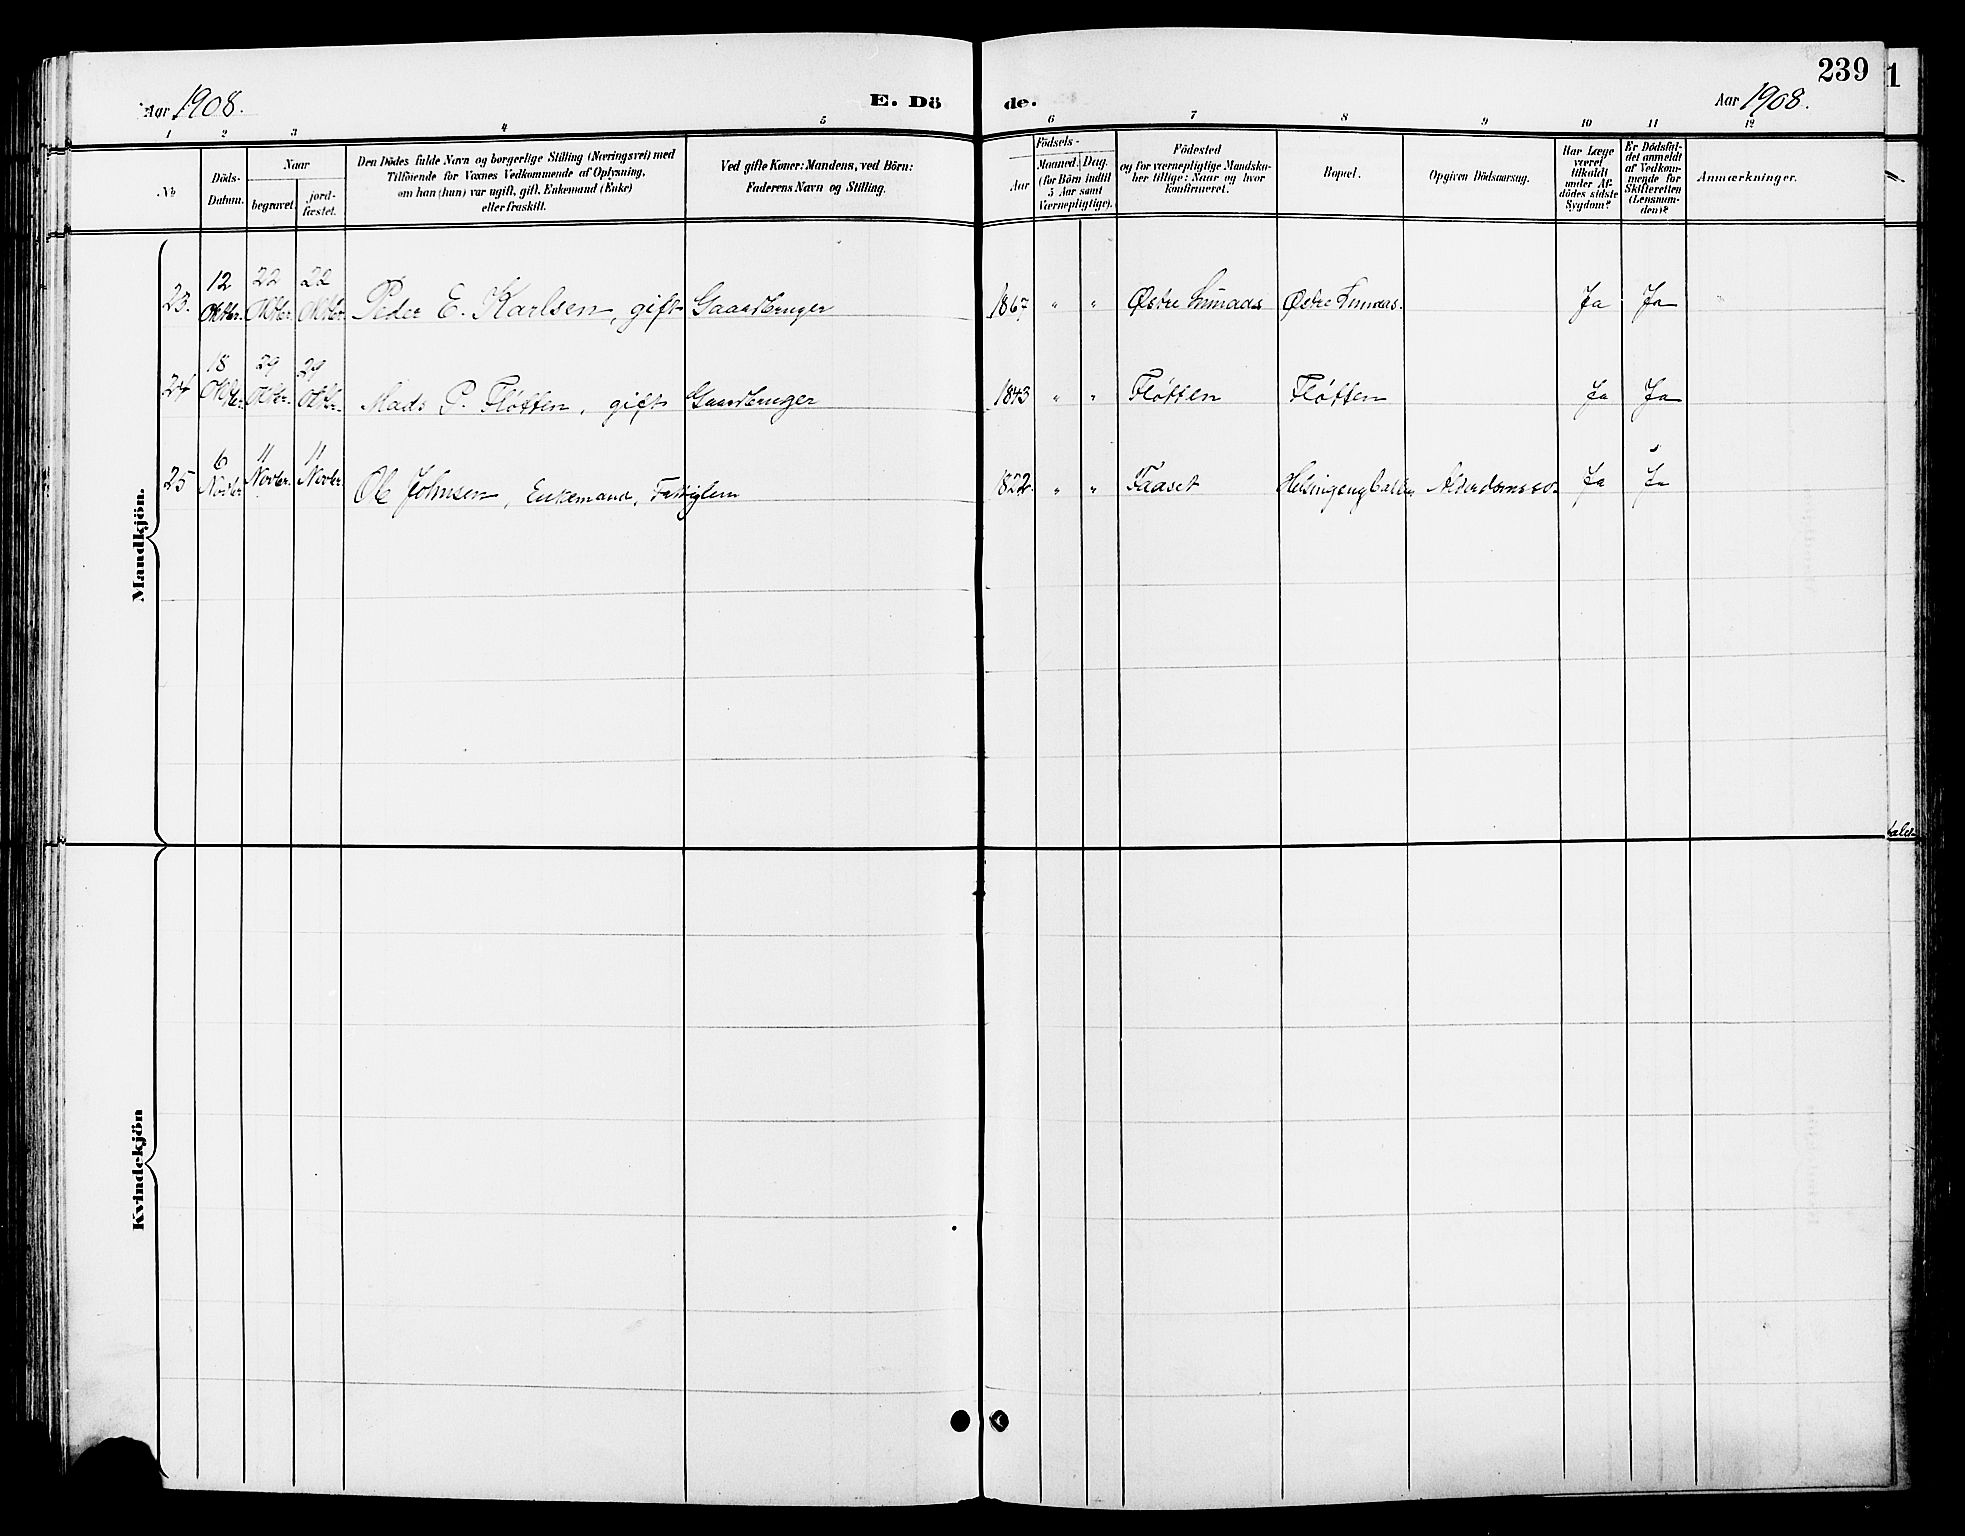 239
1
Aar 1908.
E. Dö
de.
Aar 1908.
1 2 3 4 5 6 7 8 9 10 11 12
No
Döds-
Datum.
Naar
begravet
jord-
fæstet.
Den Dödes fulde Navn og borgerlige Stilling (Næringsvei) med
Tilföiende for Voxnes Vedkommende af Oplysning,
om han (hun) var ugift, gift, Enkemand (Enke)
eller fraskilt.
Ved gifte Koner: Mandens, ved Börn:
Faderens Navn og Stilling.
Födsels-
Aar
Maaned.
Dag.
(for Börn indtil
5 Aar samt
Værnepligtige).
Födested
og for værnepligtige Mandskaber
tillige: Naar og hvor
konfirmeret.
Bopæl.
Opgiven Dödsaarsag.
Har Læge
været
tilkaldt
under Af-
dödes sidste
Sygdom?
Er Dödsfal-
det anmeldt
af Vedkom-
mende for
Skifteretten
(Lensman-
den)?
Anmærkninger.
Mandkjön.
23. 12 Oktbr. 22 Oktbr. 22 Oktbr. Peder E. Karlsen, gift Gaardbruger 1867 " " Østre Ja Ja
24 18 Oktbr. 29 Oktbr. 29 Oktbr. Mads P. Fløtten, gift Gaardbruger 1843 " " Fløtten Fløtten Ja Ja
25 6 Novbr. 11 Novbr. 11 Novbr. Ole Johnsen, Enkemand, Fattiglem 1822. " " Faaset Ja Ja
Kvindekjön